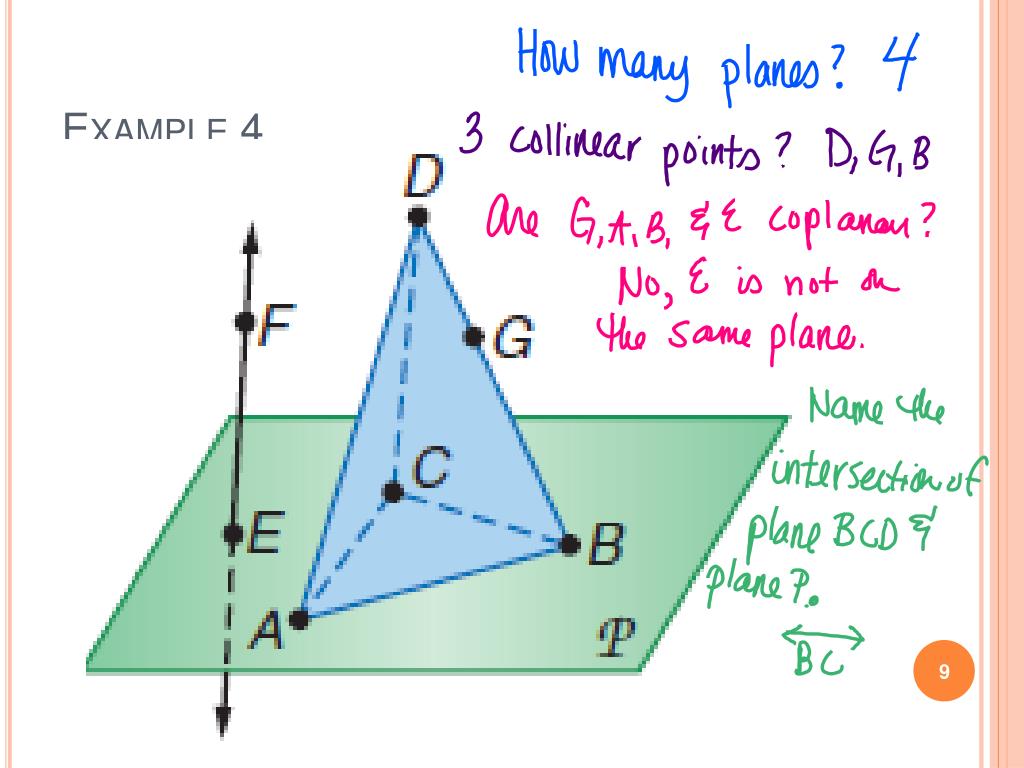 How many planes? 4
EXAMPLE 4
3 collinear points? D, G, B
D
Are G, A, B, & E coplanar?
No, E is not on
the same plane.
F
G
Name the
intersection of
plane BCD &
plane P.
BC
C
E
B
A
P
9